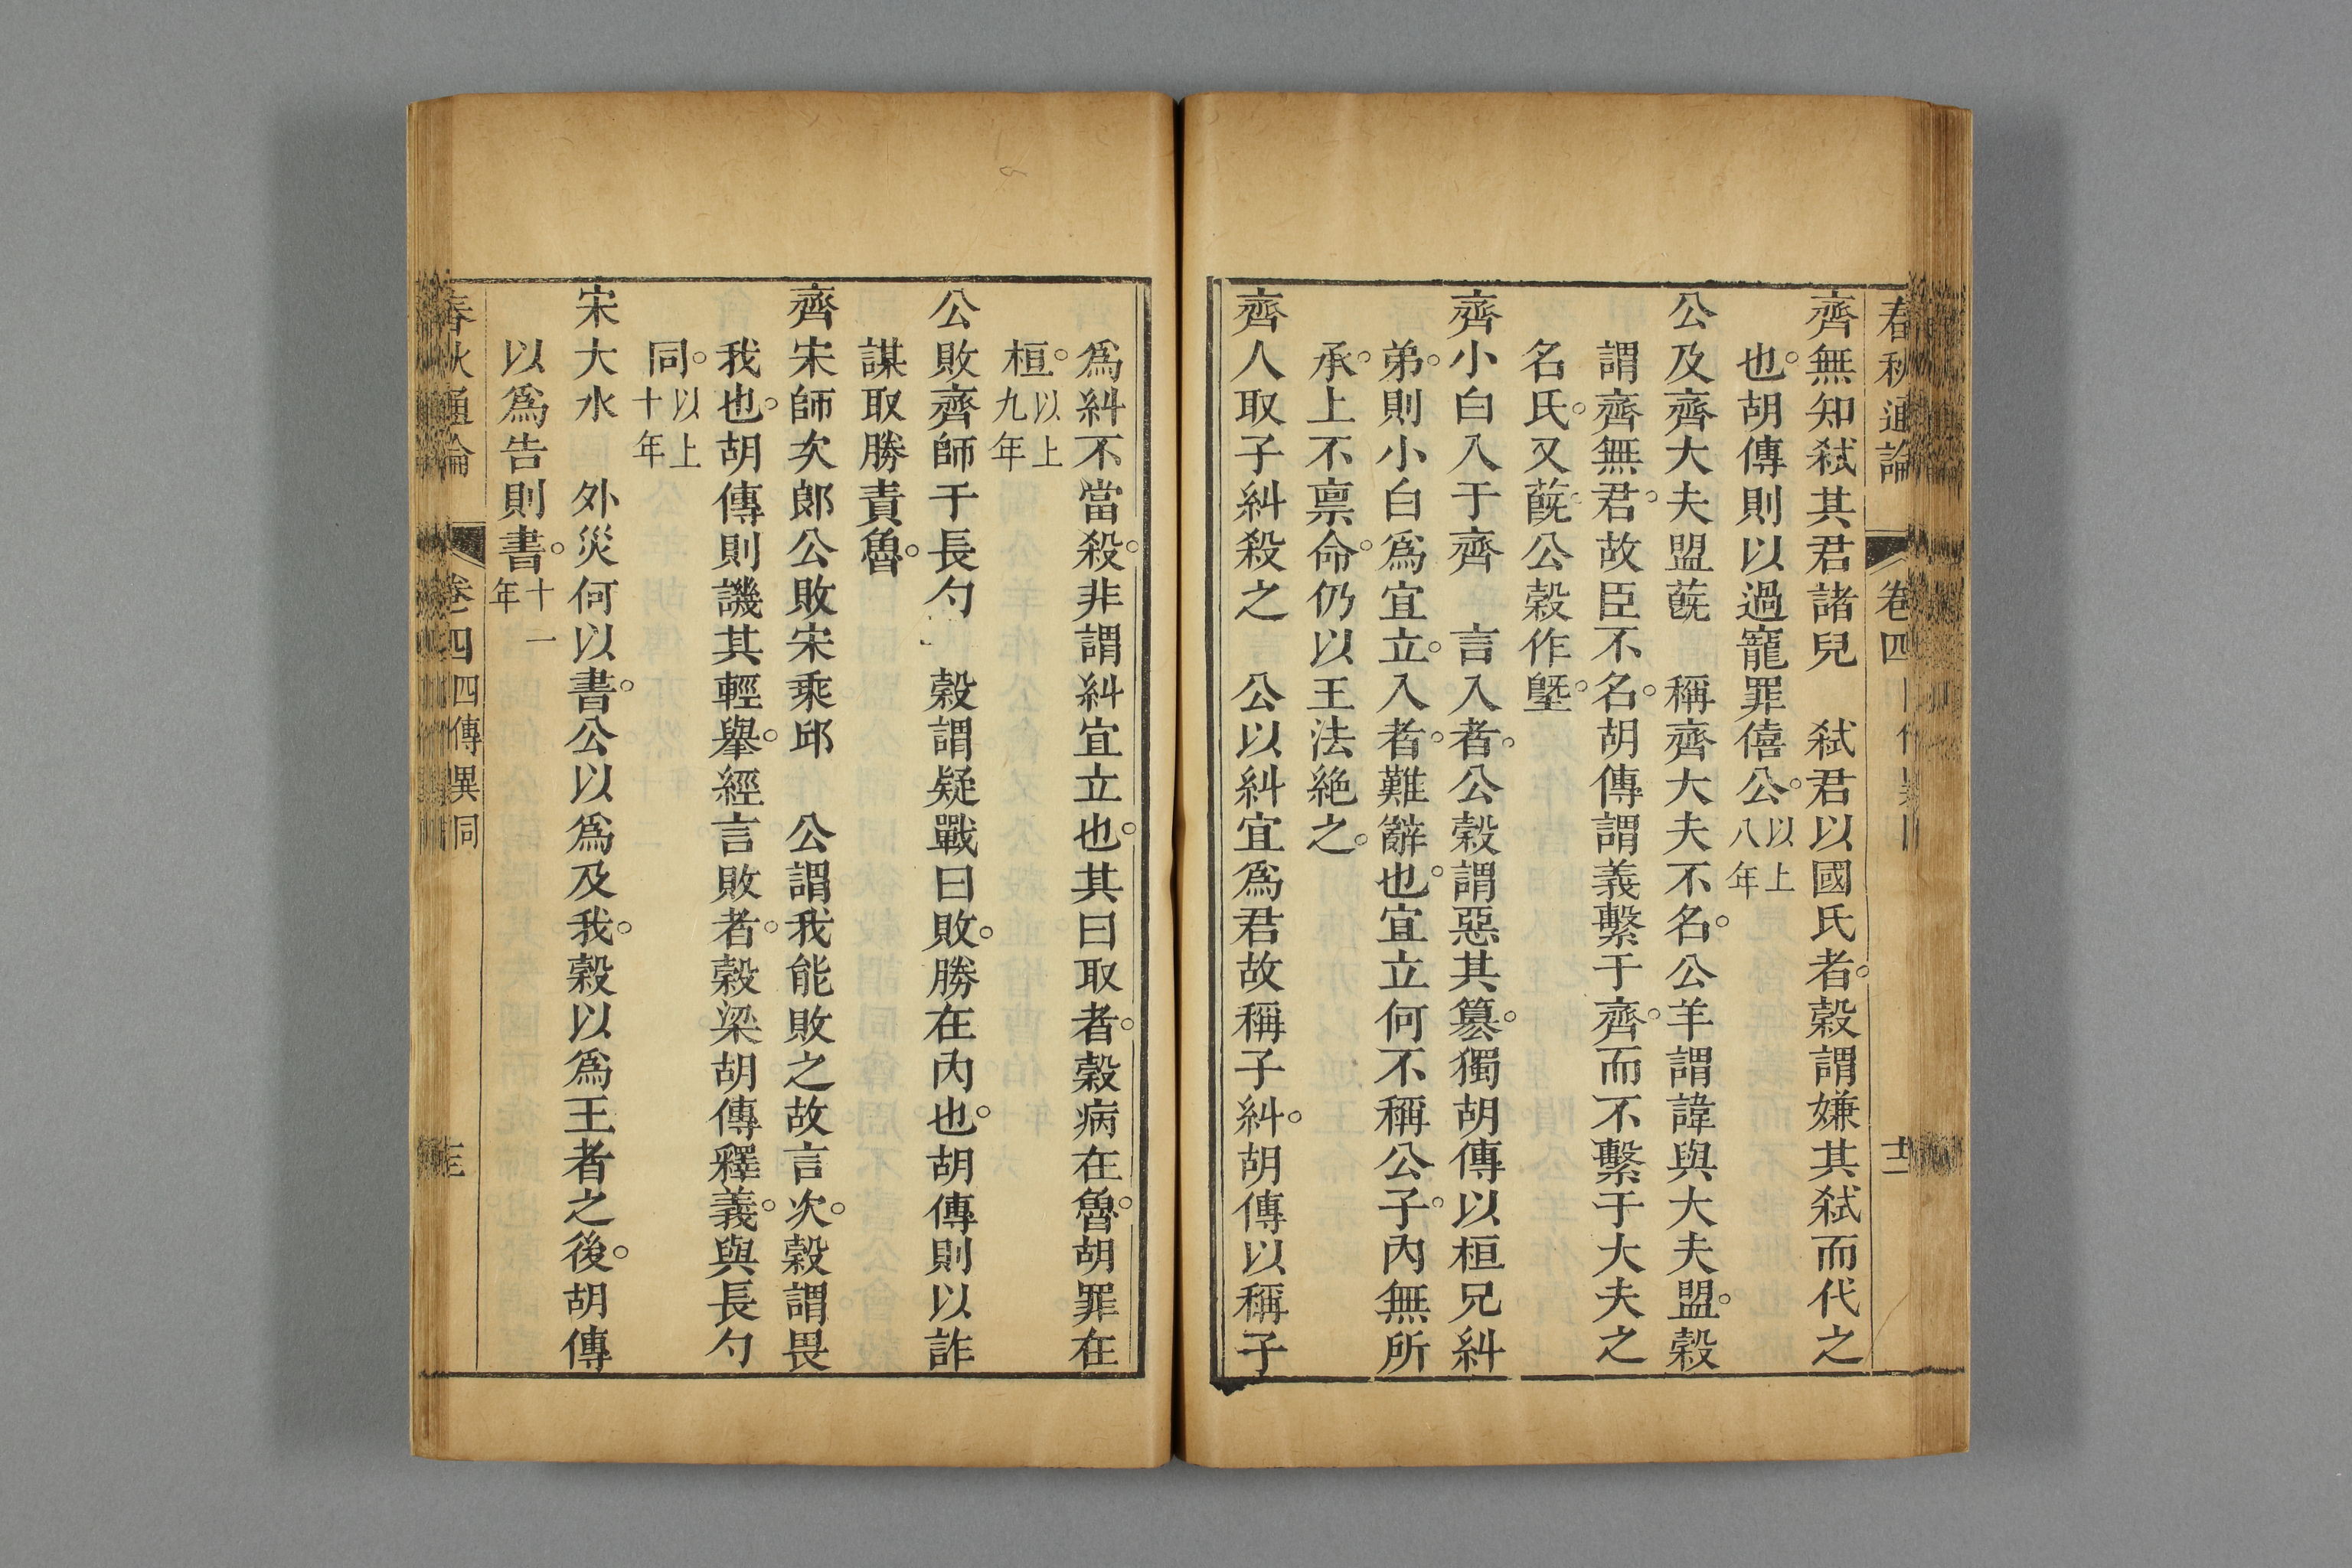 春秋通論 卷四
齊無知弑其君諸兒　弑君以國氏者。穀謂嫌其弑而代之
也。胡傳則以過寵罪僖公。以上八年
公及齊大夫盟蔇　稱齊大夫不名。公羊謂諱與大夫盟。穀
謂齊無君。故臣不名。胡傳謂義繫于齊。而不繫于大夫之
名氏。又蔇。公穀作曁。
齊小白入于齊　言入者。公穀謂惡其簒。獨胡傳以桓兄糾
弟。則小白爲宜立。入者。難辭也。宜立何不稱公子。內無所
承。上不禀命。仍以王法絶之。
齊人取子糾殺之　公以糾宜爲君故稱子糾。胡傳以稱子
爲糾不當殺。非謂糾宜立也。其曰取者。穀病在魯。胡罪在
桓。以上九年
公敗齊師于長勺　穀謂疑戰曰敗。勝在內也。胡傳則以詐
謀取勝責魯。
齊宋師次郎公敗宋乘邱　公謂我能敗之故言次。穀謂畏
我也。胡傳則譏其輕擧。經言敗者。穀梁胡傳釋義。與長勺
同。以上十年
宋大水　外災何以書。公以爲及我。穀以爲王者之後。胡傳
以爲告則書。十一年
春秋通論 卷四 四傳異同